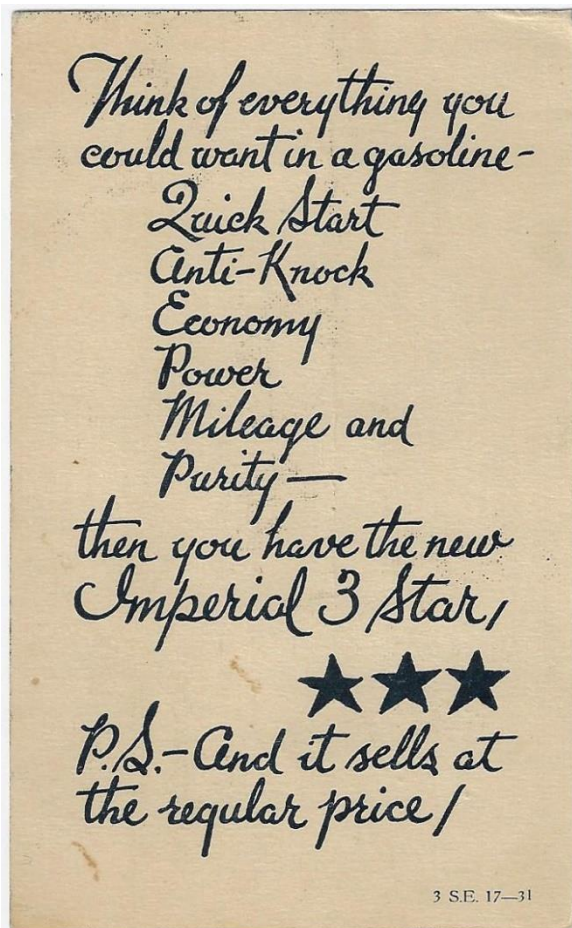 Think of everything you
could want in a gasoline-
Quick Start
Anti-Knock
Economy
Power
Mileage and
Purity—
then you have the new
Imperial 3 Star!
★★★
P.S.-And it sells at
the regular price!
3 S.E. 17—31